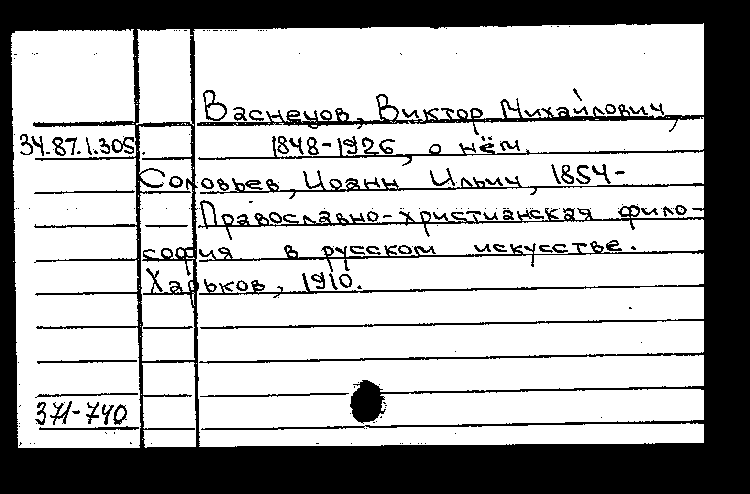 Васнецов, Виктор Михайлович,
34.87.1.305. 1848-1926, о нём.
Соловьев, Иоанн Ильич, 1854-
Православно-христианская фило-
софия в русском искусстве.
Харьков, 1910.
371-740